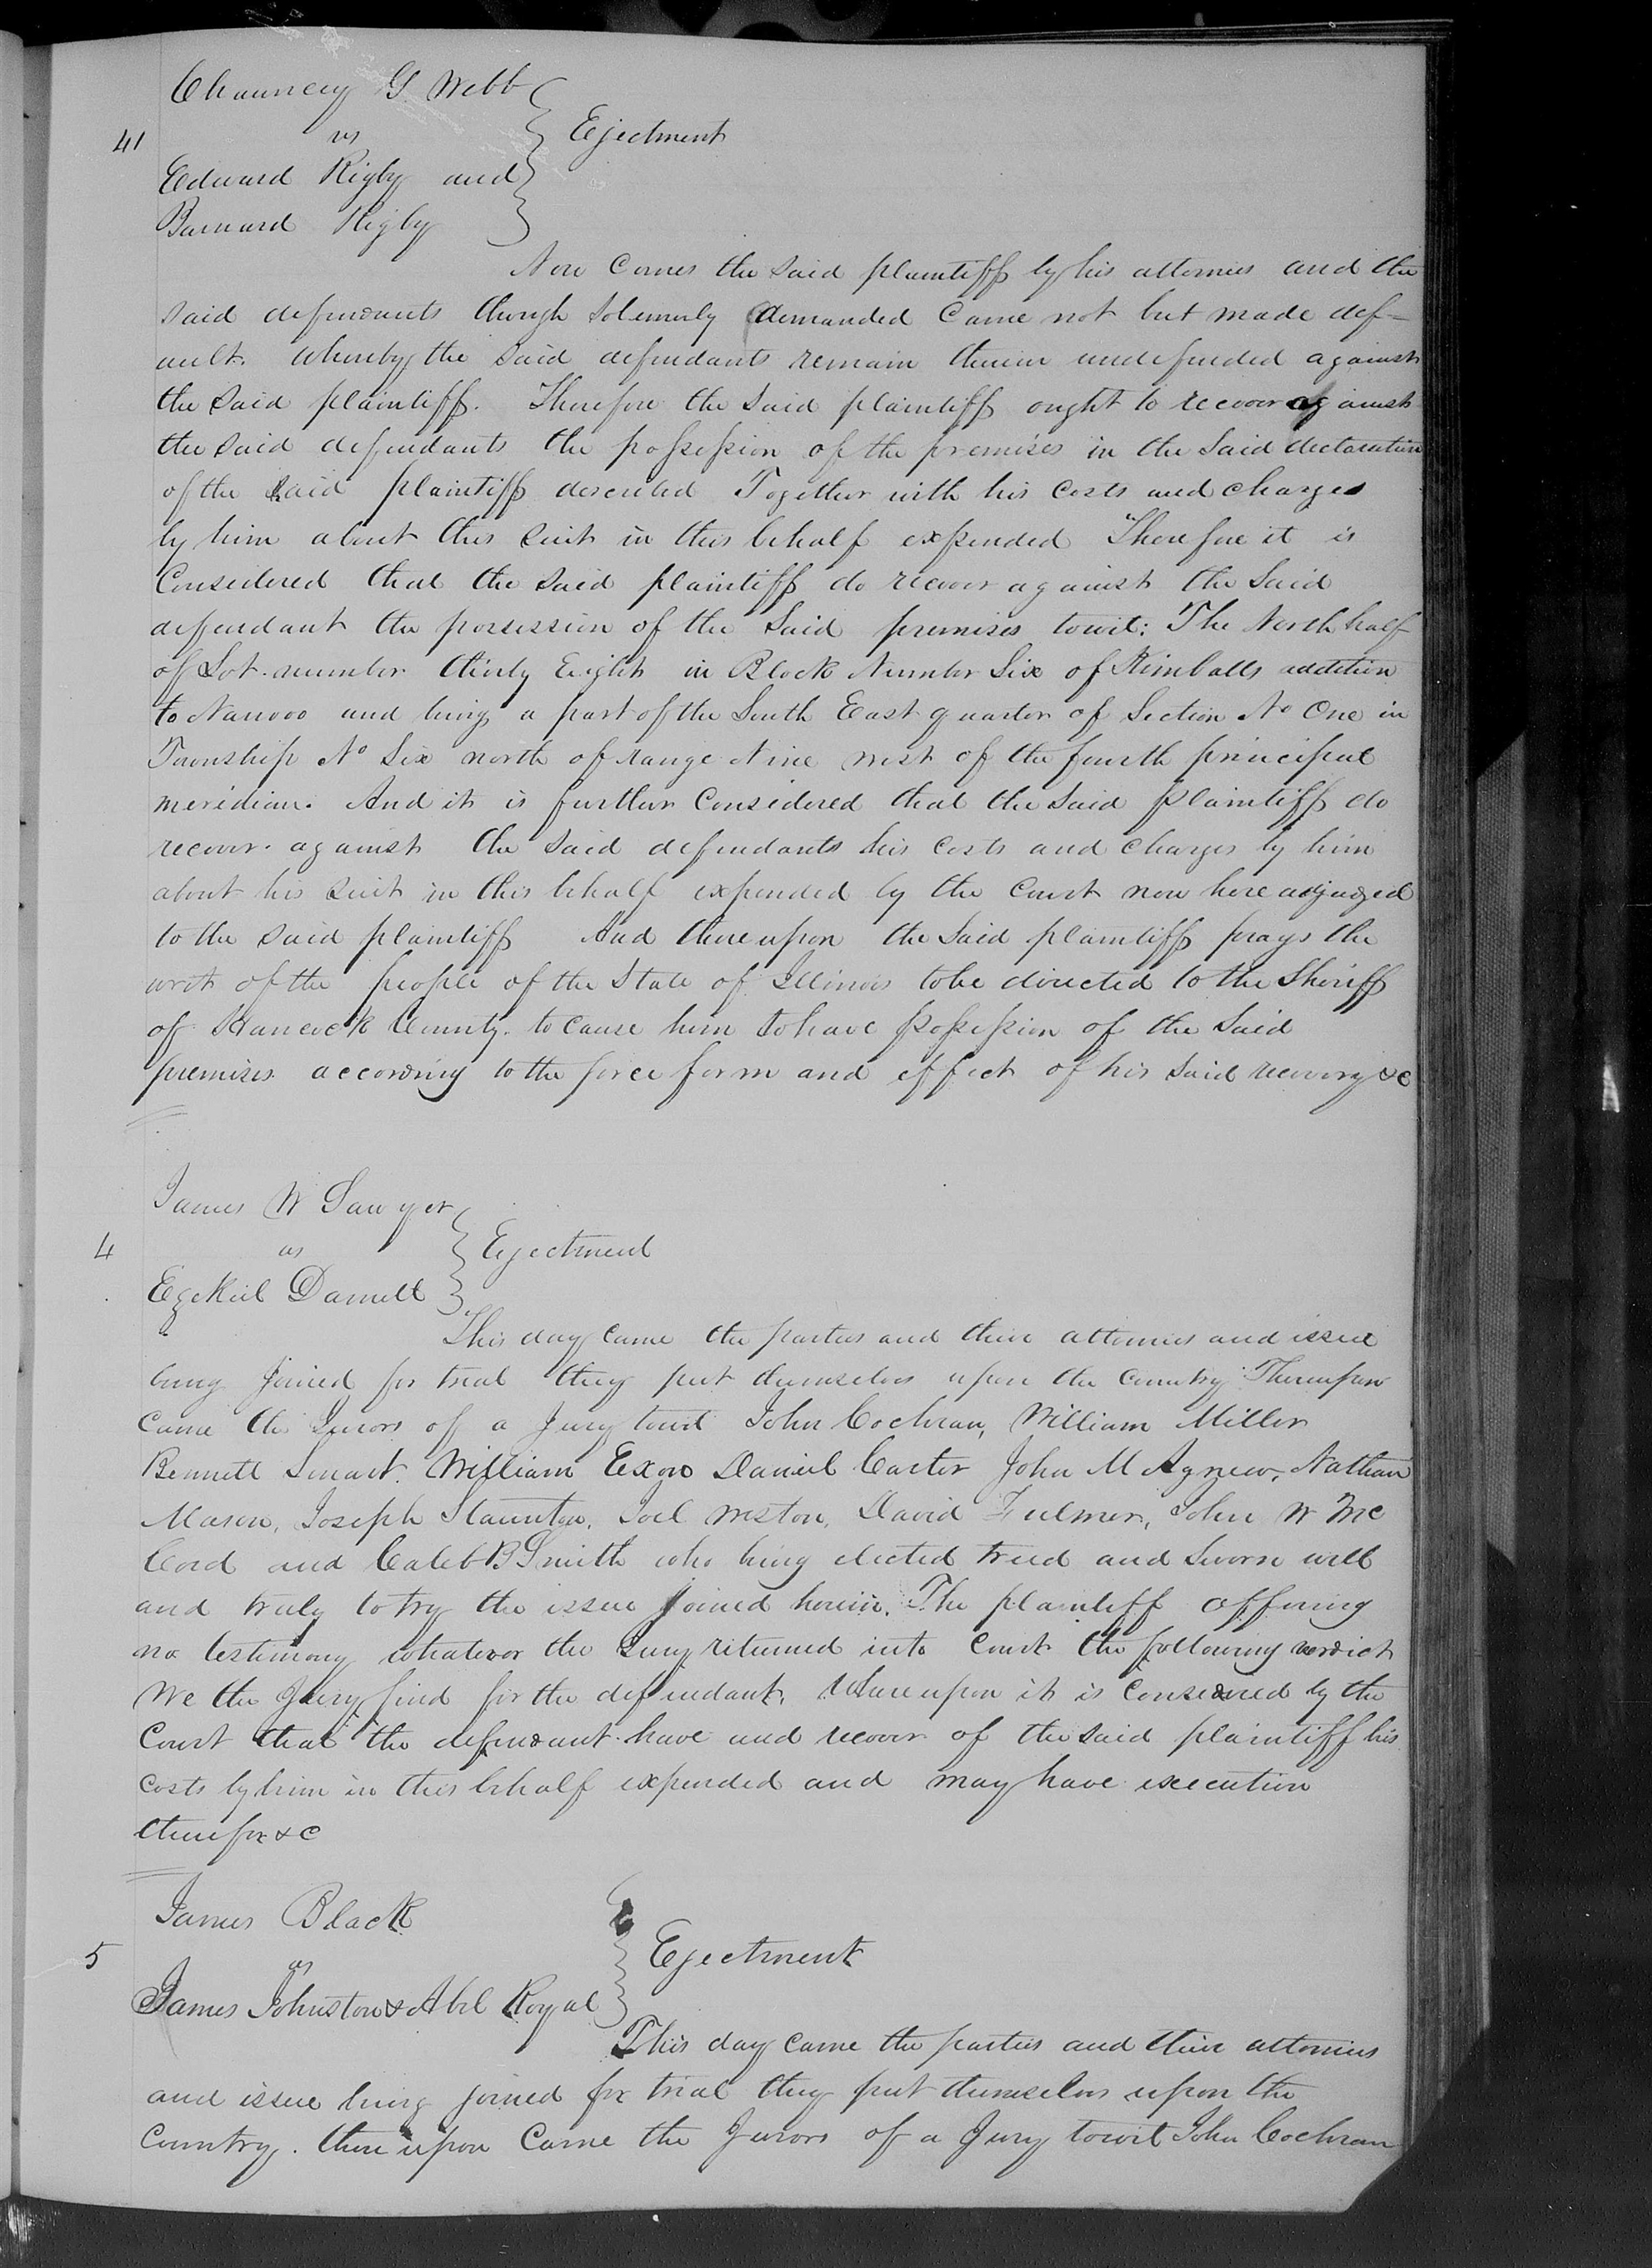 Chauncey G Webb
41 vs Ejectment
Edward Rigby and
Barnard Rigby
Now Comes the said plaintiff by his attornies and the
said defendants though Solemnly demanded Came not but made def-
ault. whereby the said defendants remain therein undefended against
the said plaintiff. Therefore the said plaintiff ought to recover against
the said defendants the possession of the premises in the said declaration
of the said plaintiff described Together with his Costs and charges
by him about this suit in this behalf expended Therefore it is
Considered that the said plaintiff do recover against the said
defendant the possession of the said premises towit: The North half
of Lot number thirty Eight in Block Number Six of Kimballs addition
to Nauvoo and being a part of the South East quarter of Section No One in
Township No Six north of range Nine west of the fourth principal
meridian. And it is further Considered that the said plaintiff do
recover against the said defendants his costs and charges by him
about his suit in this behalf expended by the Court now here adjudged
to the said plaintiff And thereupon the said plaintiff prays the
writ of the people of the State of Illinois to be directed to the Sheriff
of Hancock County. to cause him to have possession of the said
premises according to the force form and effect of his said recovery &c
James W Sawyer
4 vs Ejectment
Ezekiel Darnell
This day came the parties and their attornies and issue
being joined for trial they put themselves upon the country Thereupon
came the Jurors of a Jury towit John Cochran, William Miller
Bennett Smart. William Exon Daniel Carter John M Agnew, Nathan
Mason, Joseph Staunton, Joel Weston, David Fulmer, John W Mc
Cord and Caleb B Smith who being elected tried and Sworn well
and truly to try the issue joined herein. The plaintiff offering
no testimony whatever the Jury returned into Court the following verdict
We the Jury find for the defendant, Whereupon it is Considered by the
Court that the defendant have and recover of the said plaintiff his
costs by him in this behalf expended and may have execution
therefor &c
James Black
5 vs Ejectment
James Johnston & Abel Royal
This day came the parties and their attornies
and issue being joined for trial they put themselves upon the
Country. thereupon Came the Jurors of a Jury towit John Cochran